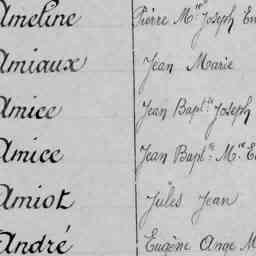 Ameline Pierre M.ie Joseph
Amiaux Jean Marie
Amice Jean Bapt.te Joseph
Amice Jean Bapt.te M.ie
Amiot Jules Jean
André Eugène Ange